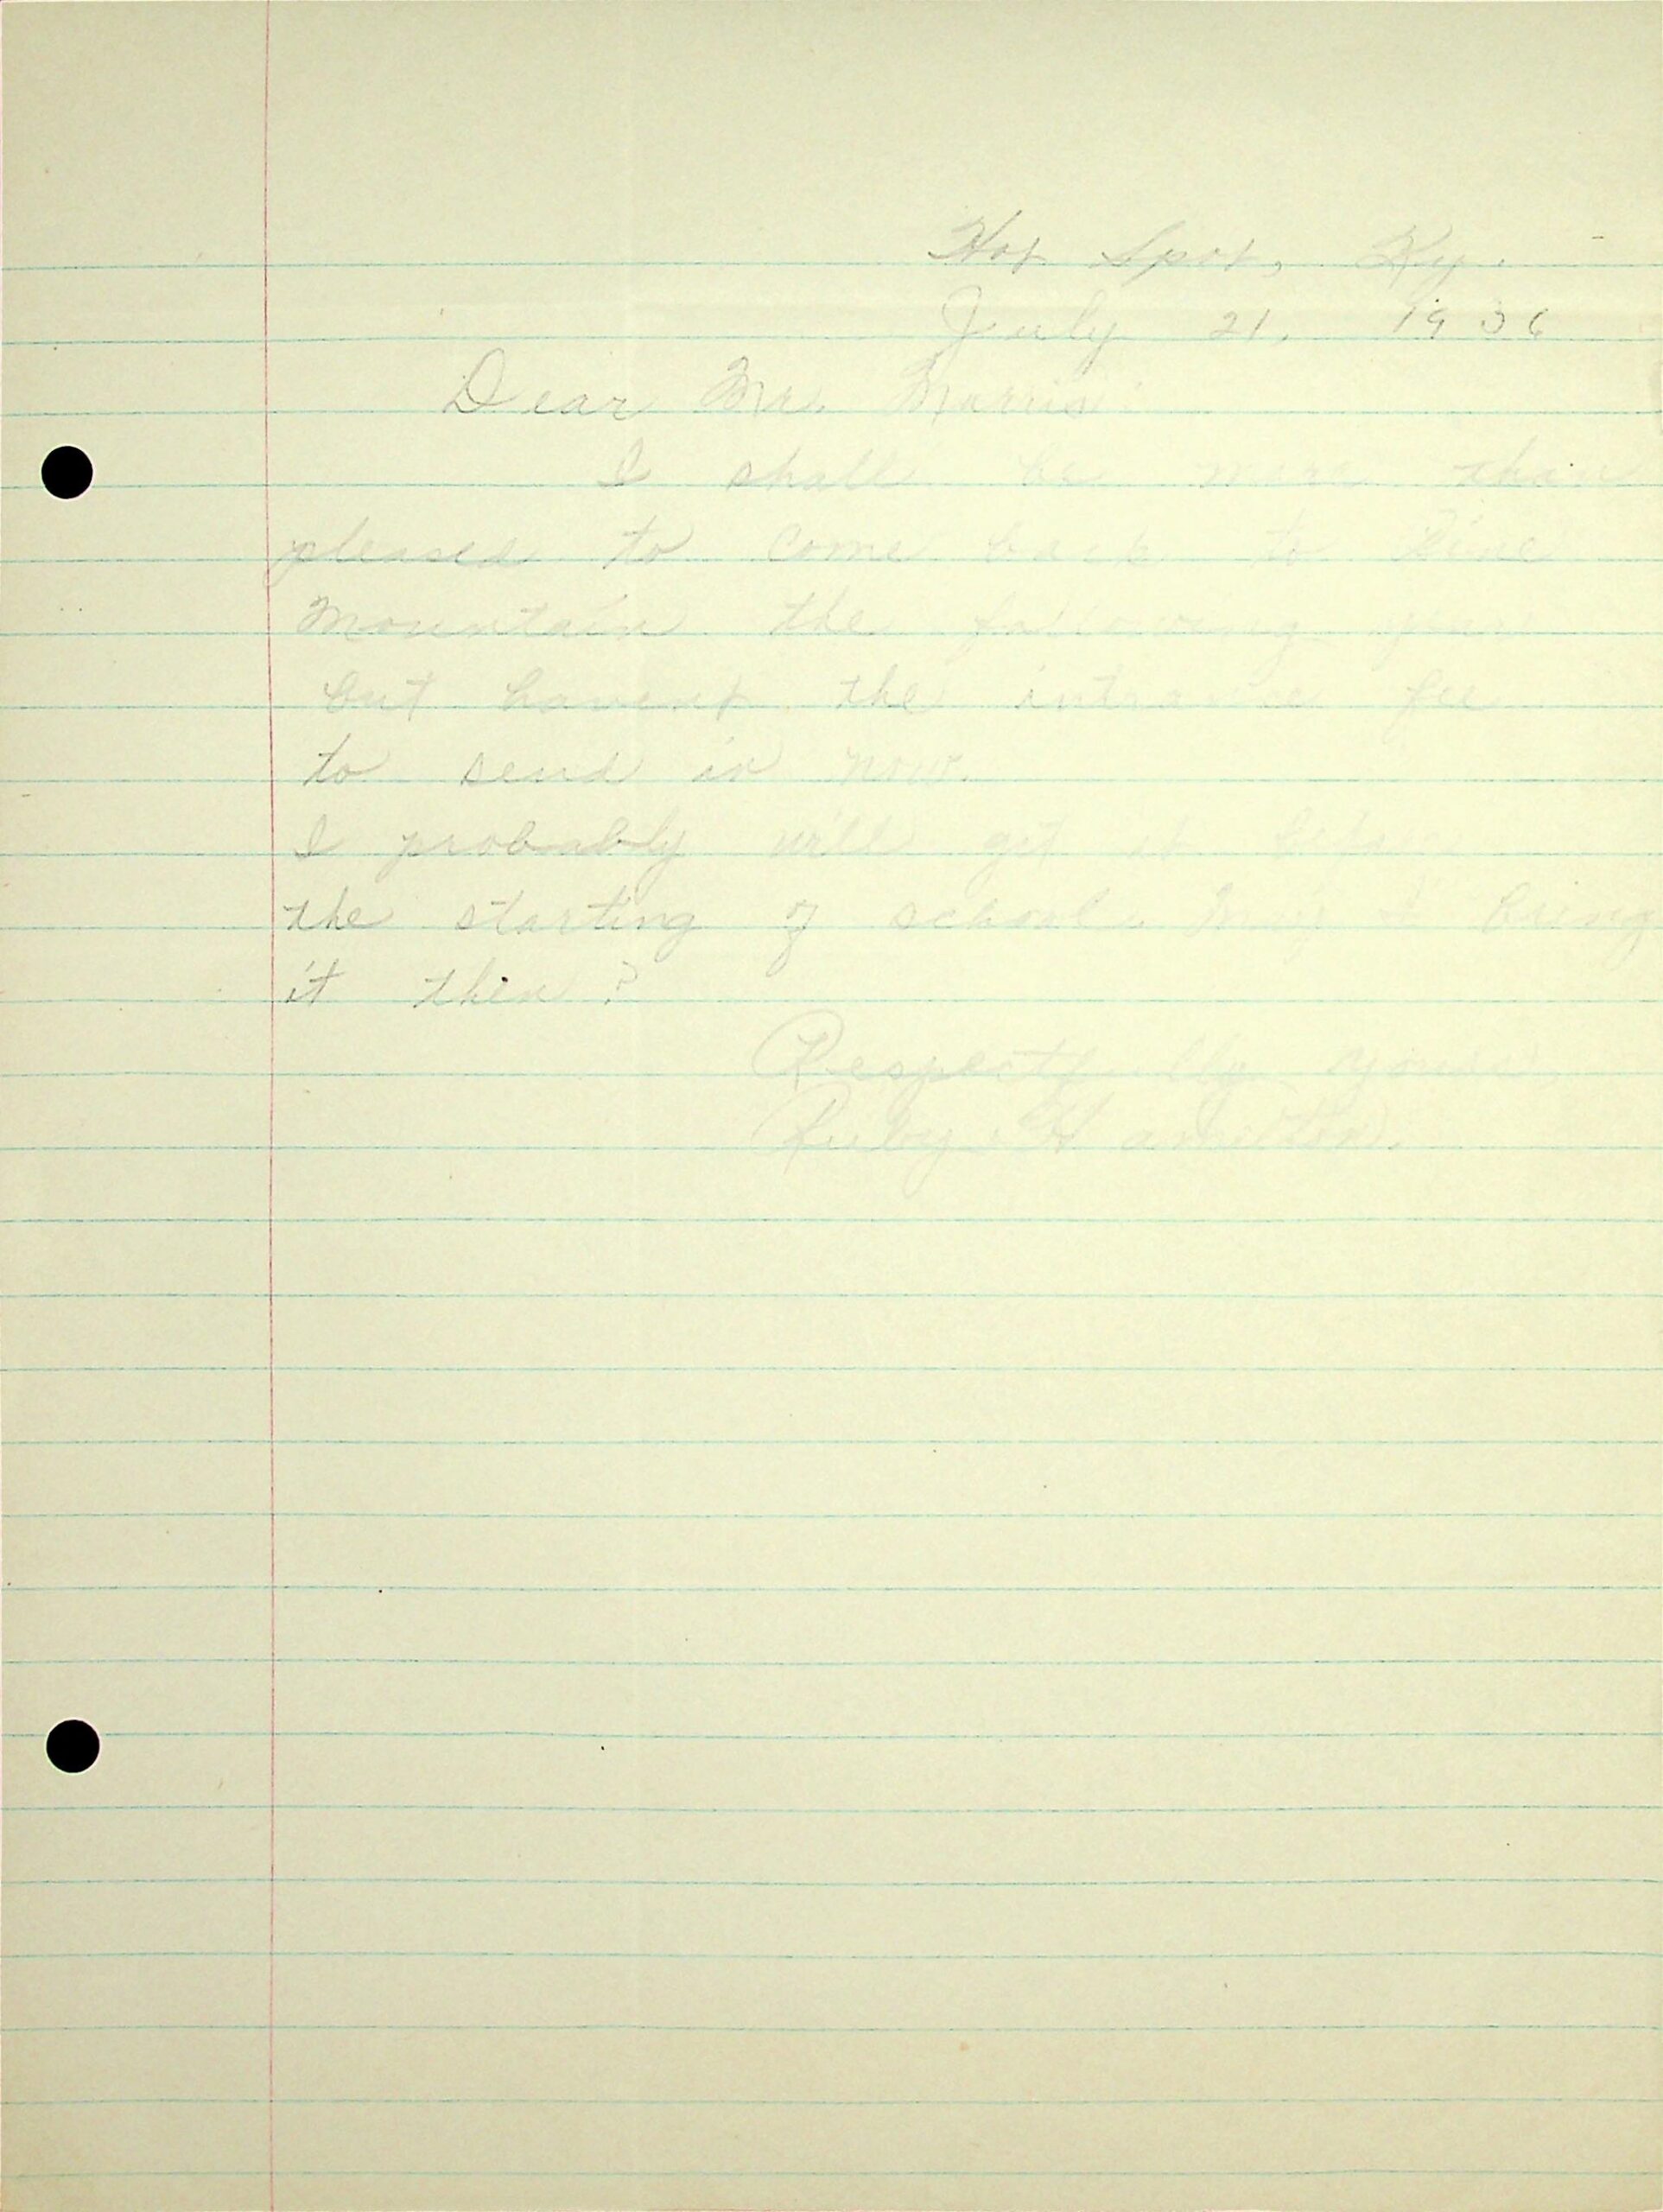 Hot Spot, Ky.
July 21, 1936
Dear Mr. Morris:
I shall be more than
pleased to come back to Pine
Mountain the following year
but havent the intrance fee
to send in now.
I probably will get it before
the starting of school. May I bring
it then?
Respectfully yours,
Ruby Hamilton.